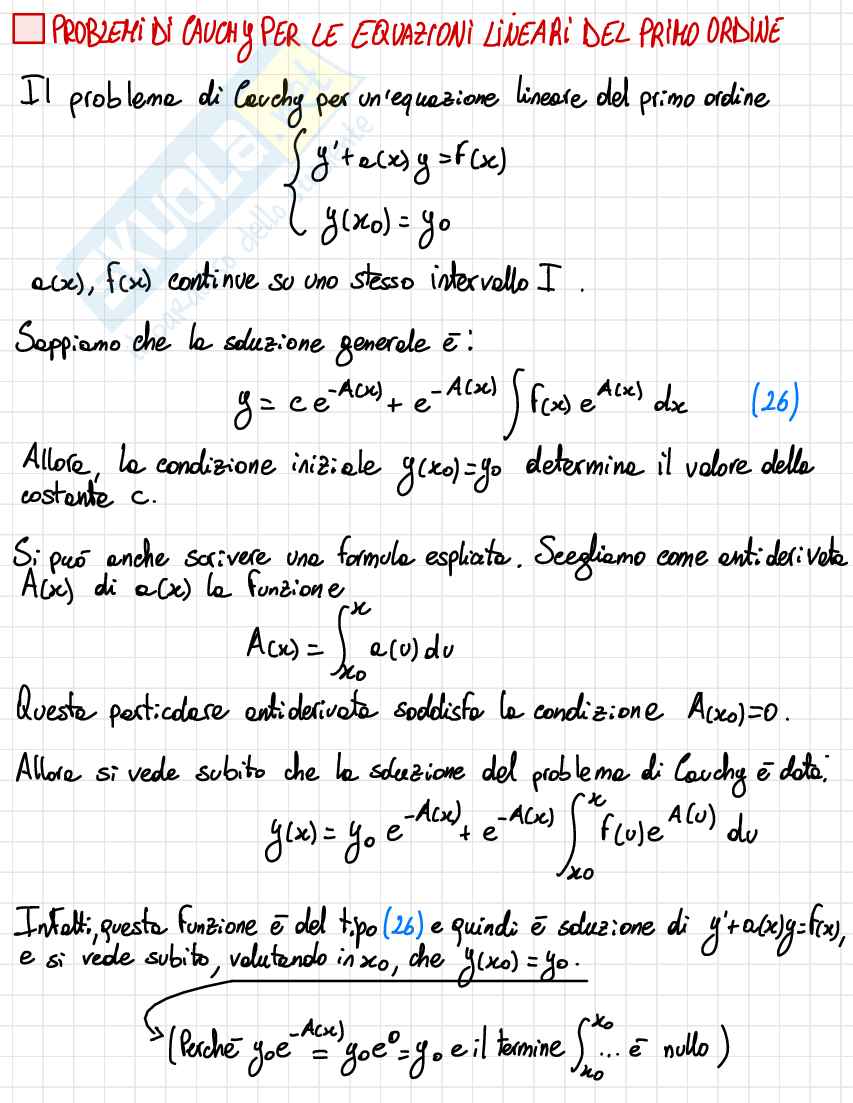 PROBLEMI DI CAUCHY PER LE EQUAZIONI LINEARI DEL PRIMO ORDINE
Il problema di Cauchy per un'equazione lineare del primo ordine
{ y' + a(x) y = f(x)
y(x₀) = y₀
a(x), f(x) continue su uno stesso intervallo I.
Sappiamo che la soluzione generale è:
y = c e^{-A(x)} + e^{-A(x)} ∫ f(x) e^{A(x)} dx (26)
Allora, la condizione iniziale y(x₀)=y₀ determina il valore della
costante c.
Si può anche scrivere una formula esplicita. Scegliamo come antiderivata
A(x) di a(x) la funzione
A(x) = ∫_{x₀}^{x} a(u) du
Questa particolare antiderivata soddisfa la condizione A(x₀)=0.
Allora si vede subito che la soluzione del problema di Cauchy è data:
y(x) = y₀ e^{-A(x)} + e^{-A(x)} ∫_{x₀}^{x} f(u) e^{A(u)} du
Infatti, questa funzione è del tipo (26) e quindi è soluzione di y'+a(x)y=f(x),
e si vede subito, valutando in x₀, che y(x₀) = y₀.
(Perché y₀e^{-A(x)} = y₀e⁰ = y₀ e il termine ∫_{x₀}^{x₀} ... è nullo)
SKUOLA.net
il paradiso dello studente